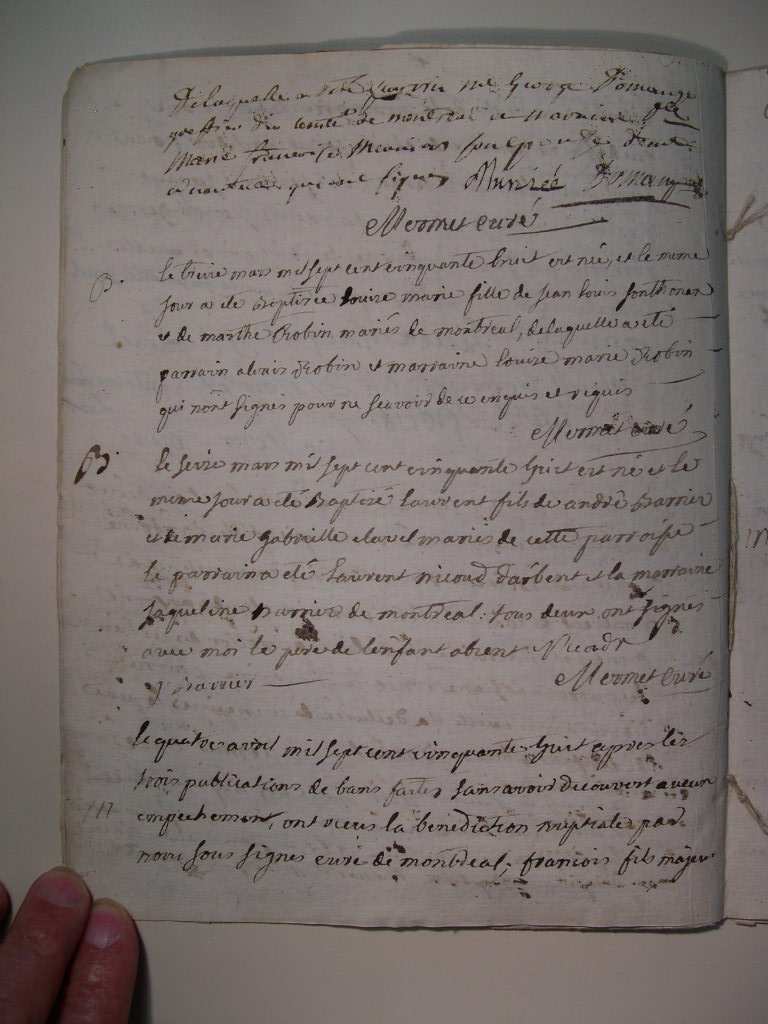 De laquelle a eté parrin me George Domange
greffier du comté de montreal et marraine
Marie meunier son epouse
qui ont signes Munier Domange
Mermet curé
B. le treize mars mil sept cent cinquante huit est née, et le meme
jour a eté Baptizée Louise marie fille de jean louis fonthonax
et de marthe Robin mariés de montreal, de laquelle a eté
parrain alexis Robin et marraine louise marie Robin
qui n'ont signes pour ne scavoir de ce enquis et requis
Mermet curé
B. le seize mars mil sept cent cinquante huit est né et le
meme jour a eté Baptizé laurent fils de andré Barrier
et de marie gabrielle clavel mariés de cette parroisse
le parrain a eté laurent nicoud d'arbent et la marraine
jaqueline Barrier de montreal: tous deux ont signés
avec moi le pere de lenfant absent Nicod
j Barrier Mermet curé
M le quatre avril mil sept cent cinquante huit apres les
trois publications de bans faites sans avoir decouvert aucun
empechement, ont recus la benediction nuptiale par
nous sous signes curé de montreal, francois fils majeur